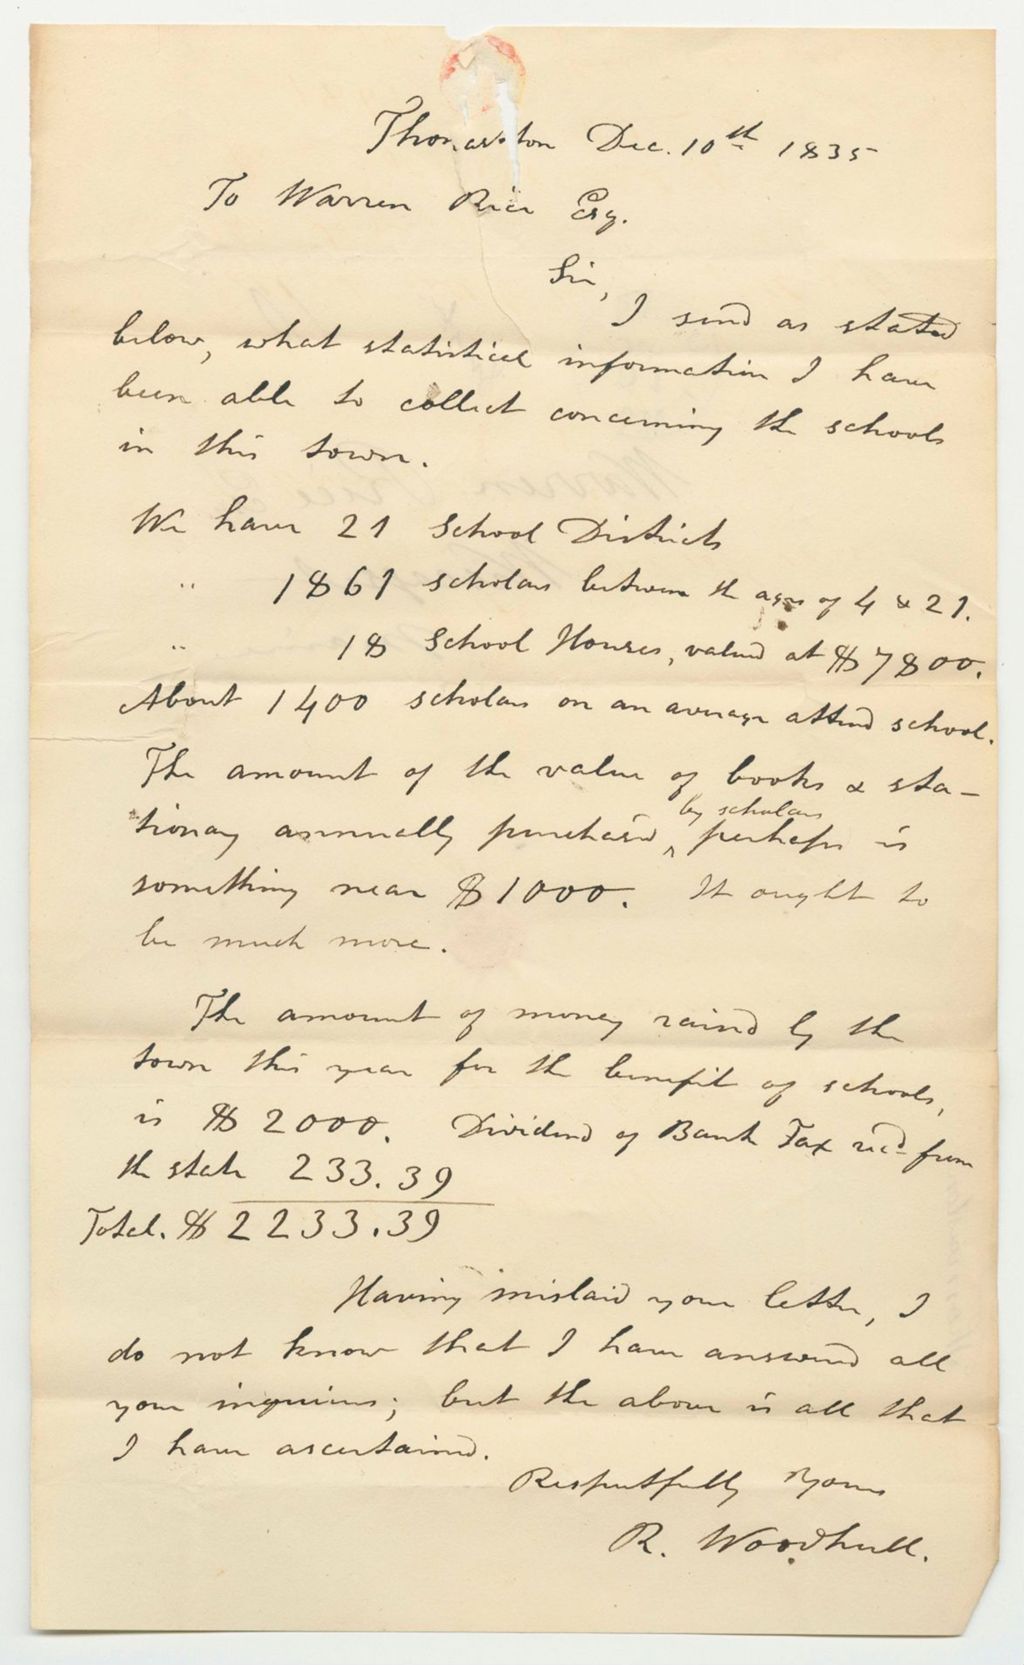 Thomaston Dec. 10th 1835
To Warren Rice Esq.
Sir,
I send as stated
below, what statistical information I have
been able to collect concerning the schools
in this town.
We have 21 School Districts
" 1861 scholars between the ages of 4 & 21.
" 18 School Houses, valued at $7800.
About 1400 scholars on an average attend school.
The amount of the value of books & sta-
by scholars
tionary annually purchased ‸ perhaps is
something near $1000. It ought to
be much more.
The amount of money raised by the
town this year for the benefit of schools,
is $2000. Dividend of Bank Tax recd from
the state 233.39
Total. $2233.39
Having mislaid your letter, I
do not know that I have answered all
your inquiries; but the above is all that
I have ascertained.
Respectfully Yours
R. Woodhull.